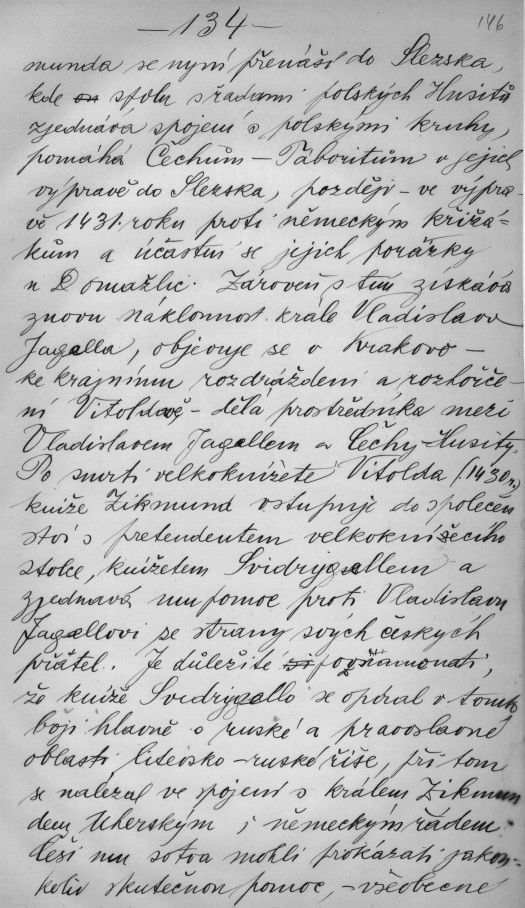 — 134 —
146
munda se nyní přenáší do Slezska,
kde spolu s řadami polských Husitů
zjednává spojení s polskými kruhy,
pomáhá Čechům – Táboritům v jejich
výpravě do Slezska, později – ve výpra-
vě 1431. roku proti německým křižá-
kům a účastní se jejich porážky
u Domažlic. Zároveň s tím získává
znovu náklonnost krále Vladislava
Jagella, objevuje se v Krakově –
ke krajnímu rozdráždění a rozhořče-
ní Vitoldově – dělá prostředníka mezi
Vladislavem Jagellem a Čechy-Husity.
Po smrti velkoknížete Vitolda (1430 r.)
kníže Zikmund vstupuje do společen
ství s pretendentem velkoknížecího
stolce, knížetem Svidrygellem a
zjednává mu pomoc proti Vladislavu
Jagellovi se strany svých českých
přátel. Je důležité si poznamenati,
že kníže Svidrygello se opíral v tomto
boji hlavně o ruské a pravoslavné
oblasti litevsko-ruské říše, při tom
se nalézal ve spojení s králem Zikmun
dem Uherským i německým řádem.
Češi mu sotva mohli prokázati jakou-
koliv skutečnou pomoc, – všeobecné